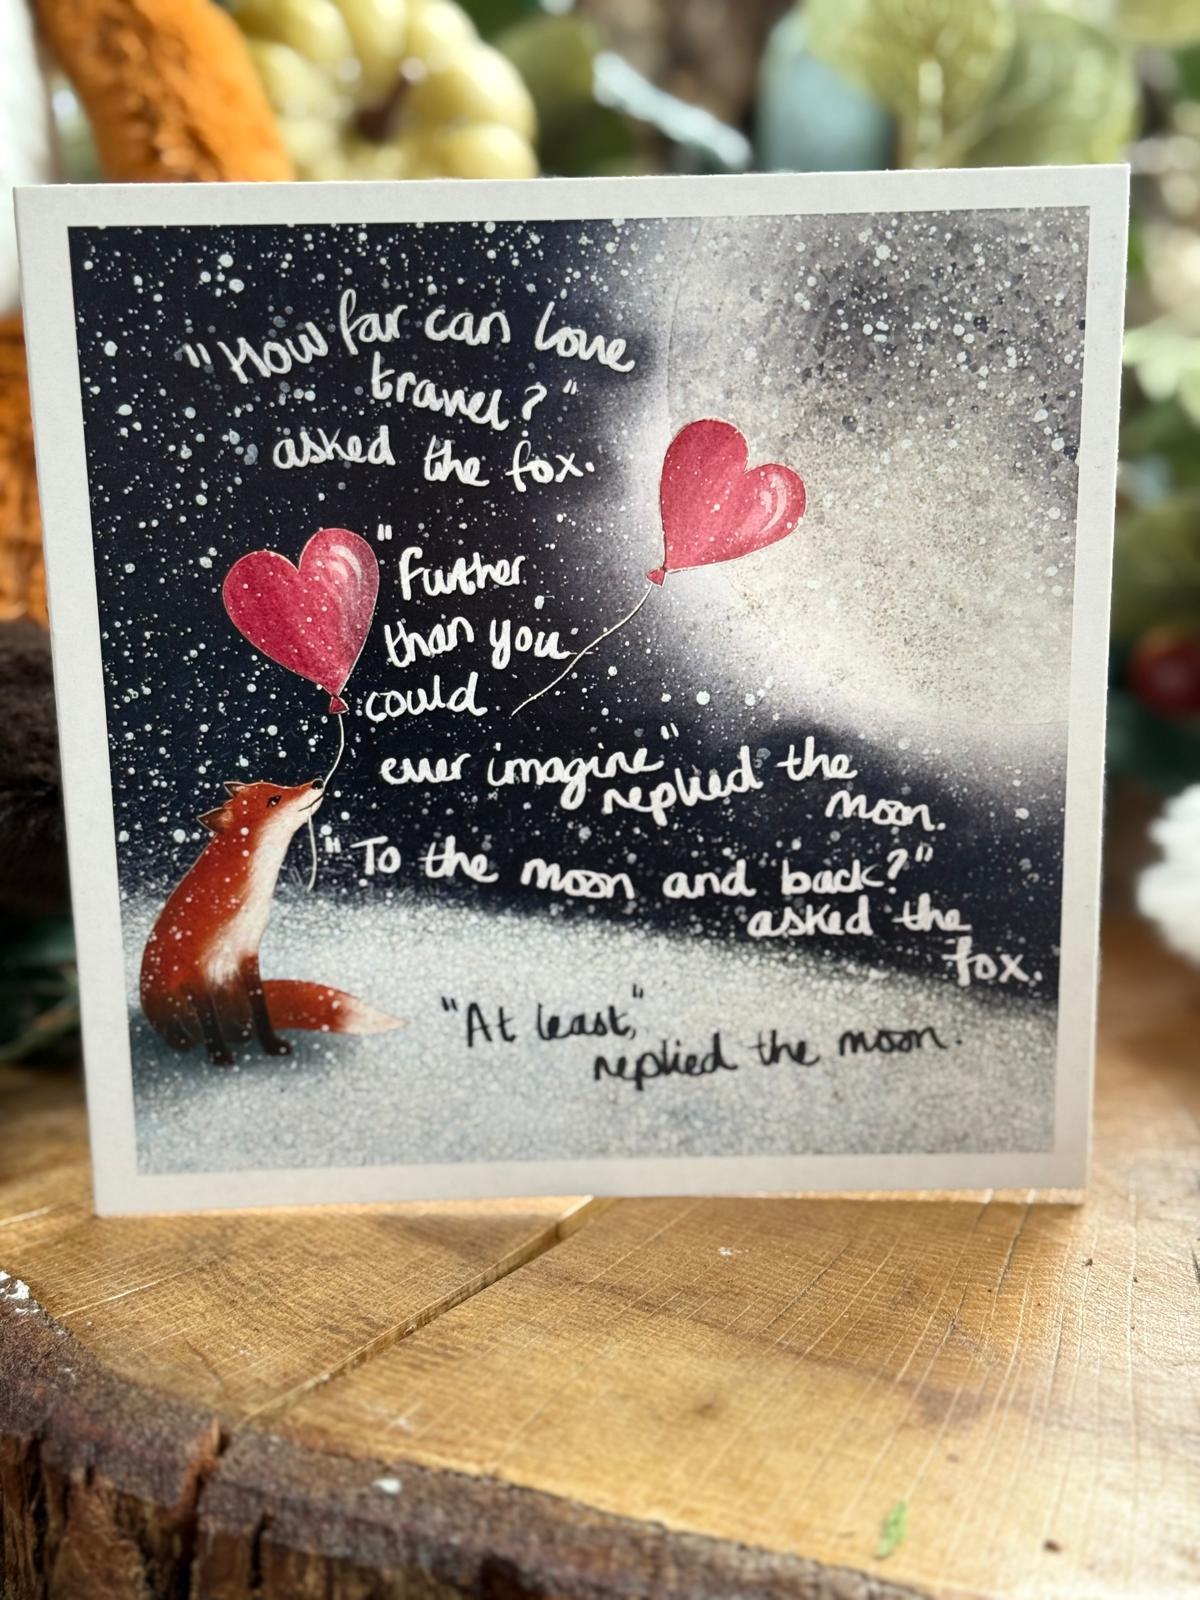 "How far can love
travel?"
asked the fox.
"Further
than you
could
ever imagine"
replied the
moon.
"To the moon and back?"
asked the
fox.
"At least,"
replied the moon.